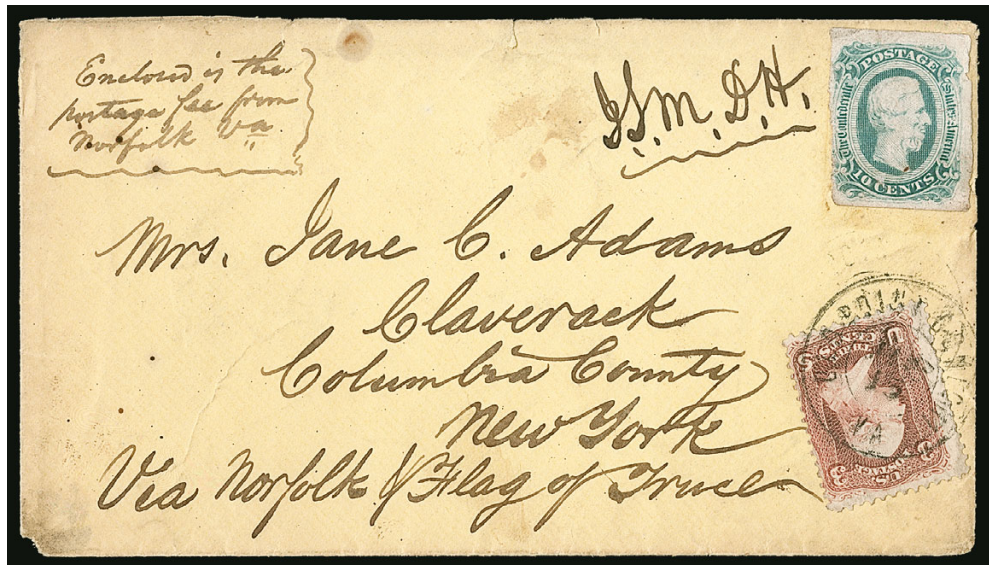 Enclosed is the
postage fee from
Norfolk Va
J.S.M. D.H.
POSTAGE
The Confederate States of America
10 CENTS
Mrs. Jane C. Adams
Claverack
Columbia County
New York
Via Norfolk & Flag of Truce
U
3
CENTS
U.S. POSTAGE
3
VA